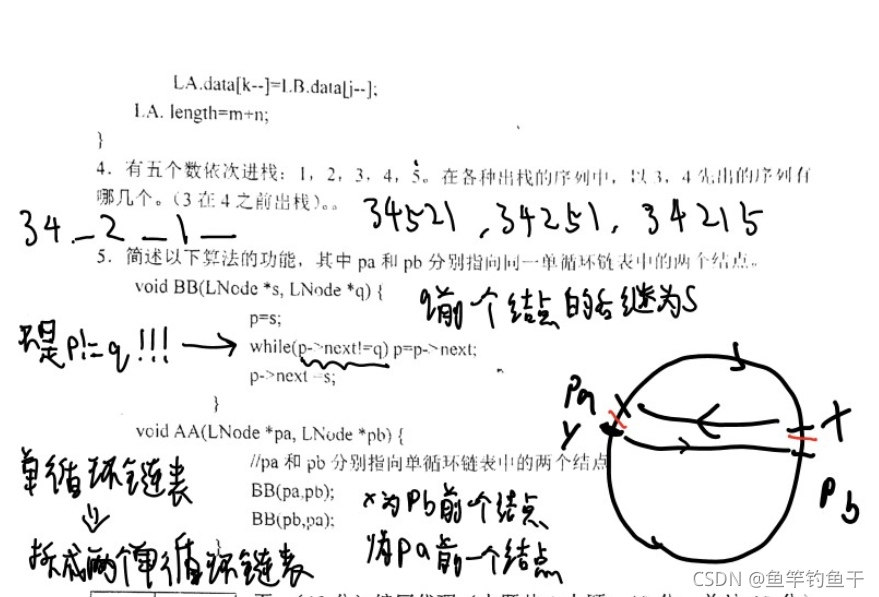 LA.data[k--]=LB.data[j--];
LA. length=m+n;
}
4．有五个数依次进栈：1，2，3．4，5。在各种出栈的序列中，以 3，4 先出的序列有
哪几个。（3 在 4 之前出栈）。。
34521 , 34251, 34215
34_2_1_
5．简述以下算法的功能，其中 pa 和 pb 分别指向同一单循环链表中的两个结点。
void BB(LNode *s, LNode *q) {
q前一个结点的后继为S
p=s;
不是p!=q !!!
while(p->next!=q) p=p->next;
p->next=s;
}
void AA(LNode *pa, LNode *pb) {
//pa 和 pb 分别指向单循环链表中的两个结点
BB(pa,pb);
BB(pb,pa);
}
单循环链表
拆成两个单循环链表
x为pb前一个结点
pa前一个结点
Pa
X
Y
X
Pb
CSDN @鱼竿钓鱼干